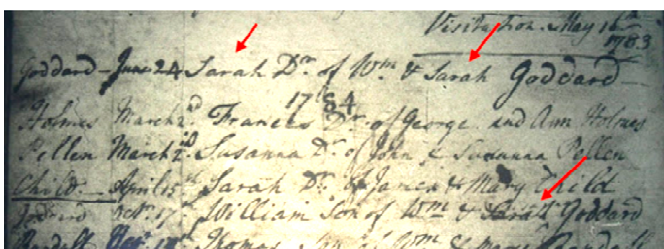 Visitation May 16th
1783
Goddard - June 24 Sarah Dr. of Wm & Sarah Goddard
1784
Holmes March 2d Frances Dr. of George and Ann Holmes
Pellen March 2d Susanna Dr. of John & Susanna Pellen
Child - April 15th Sarah Dr. of James & Mary Child
Goddard Octr. 17th William Son of Wm & Sarah Goddard
Thomas Son of Wm &